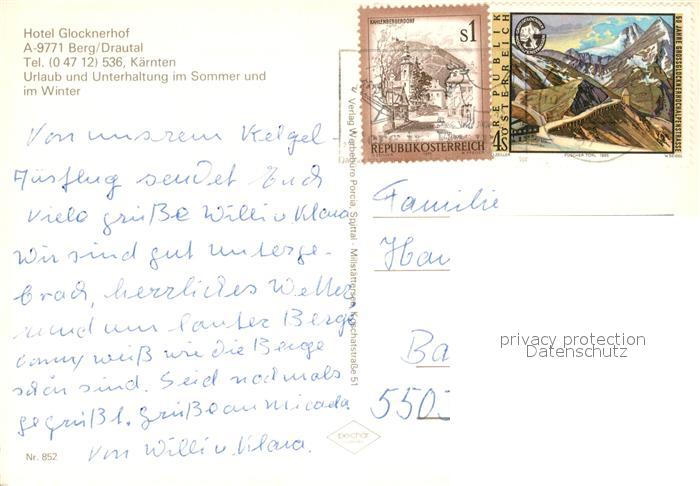 Hotel Glocknerhof
A-9771 Berg/Drautal
Tel. (0 47 12) 536, Kärnten
Urlaub und Unterhaltung im Sommer und
im Winter
KAHLENBERGERDORF
s1
REPUBLIK ÖSTERREICH
REPUBLIK
ÖSTERREICH
50 JAHRE GROSSGLOCKNERHOCHALPENSTRASSE
Von unserem Kegel-
Ausflug sendet Euch
viele grüße Willi u. Klara
Wir sind gut unterge-
brach, herrliches Wetter,
rund um lauter Berge
weiß wie die Berge
schön sind. Seid nochmals
gegrüßt. Grüße an
von Willi u. Klara.
Verlag Werbebüro Porcia, Spittal - Millstättersee, Koschatstraße 51
Familie
Hau
Ba
550
privacy protection
Datenschutz
Nr. 852